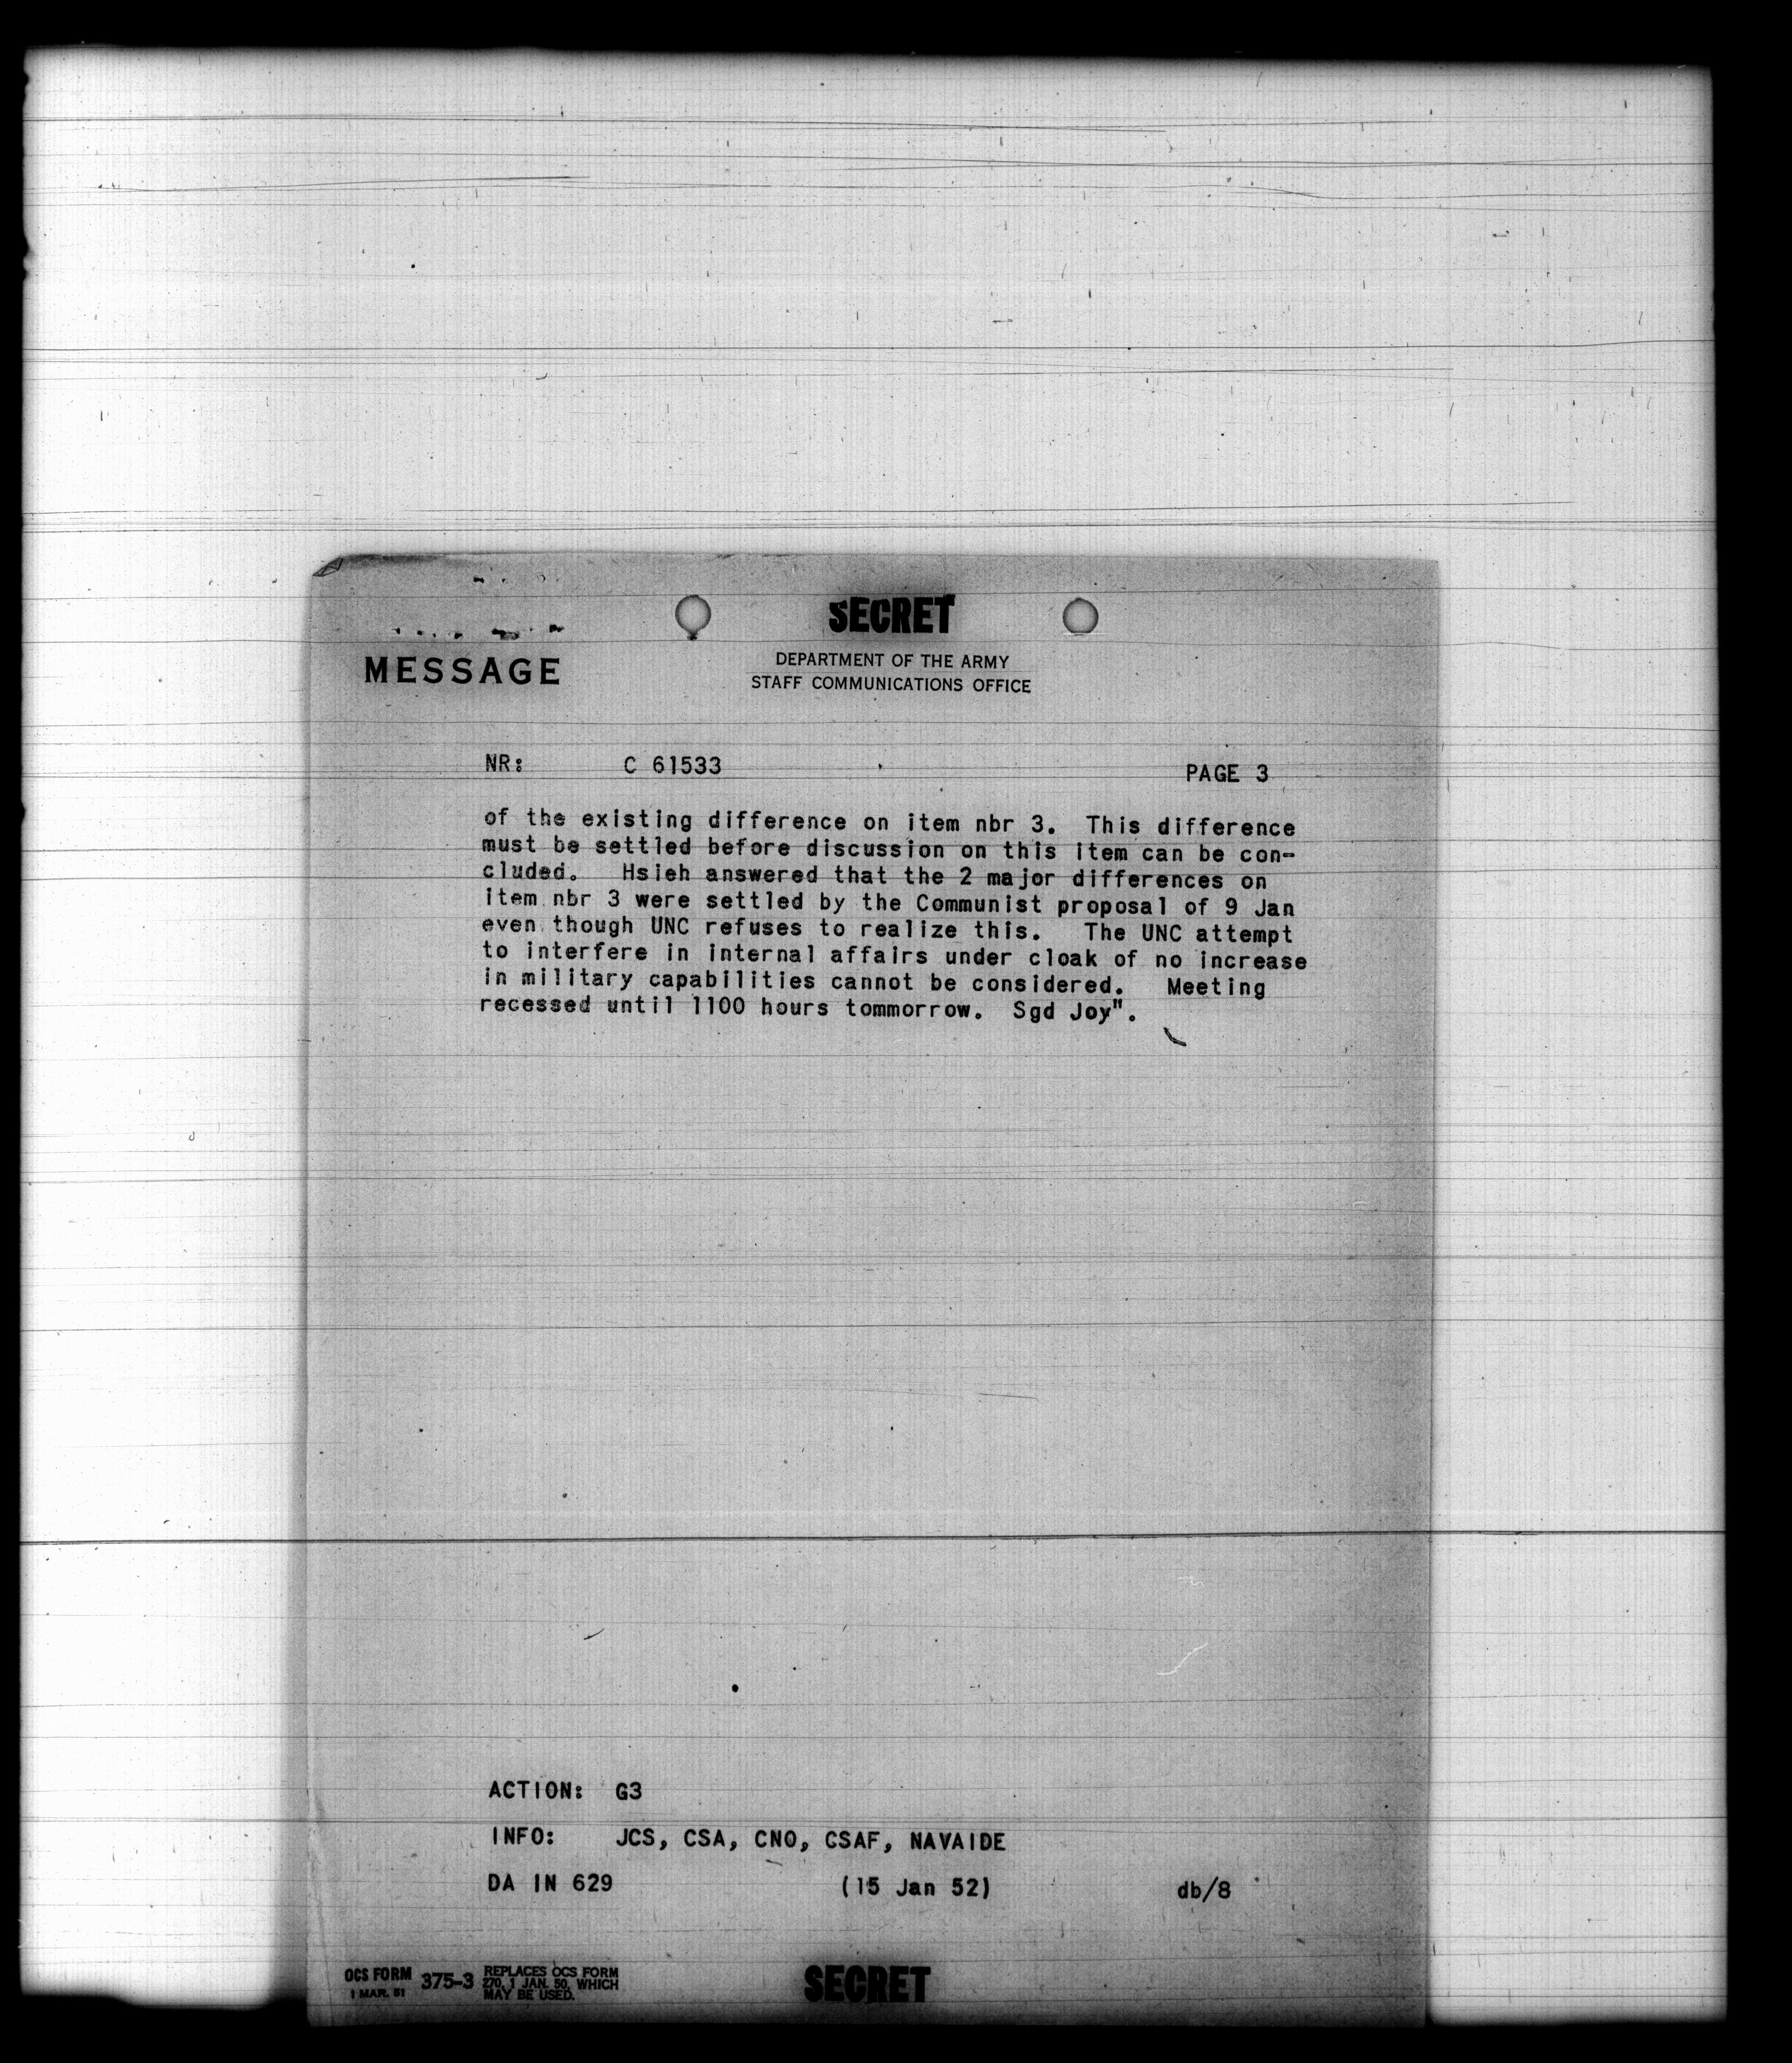 SECRET
MESSAGE
DEPARTMENT OF THE ARMY
STAFF COMMUNICATIONS OFFICE
NR: C 61533 PAGE 3
of the existing difference on item nbr 3. This difference
must be settled before discussion on this item can be con-
cluded. Hsieh answered that the 2 major differences on
item nbr 3 were settled by the Communist proposal of 9 Jan
even though UNC refuses to realize this. The UNC attempt
to interfere in internal affairs under cloak of no increase
in military capabilities cannot be considered. Meeting
recessed until 1100 hours tommorrow. Sgd Joy".
ACTION: G3
INFO: JCS, CSA, CNO, CSAF, NAVAIDE
DA IN 629 (15 Jan 52) db/8
OCS FORM 375-3 REPLACES OCS FORM
1 MAR. 51 270, 1 JAN. 50, WHICH
MAY BE USED.
SECRET